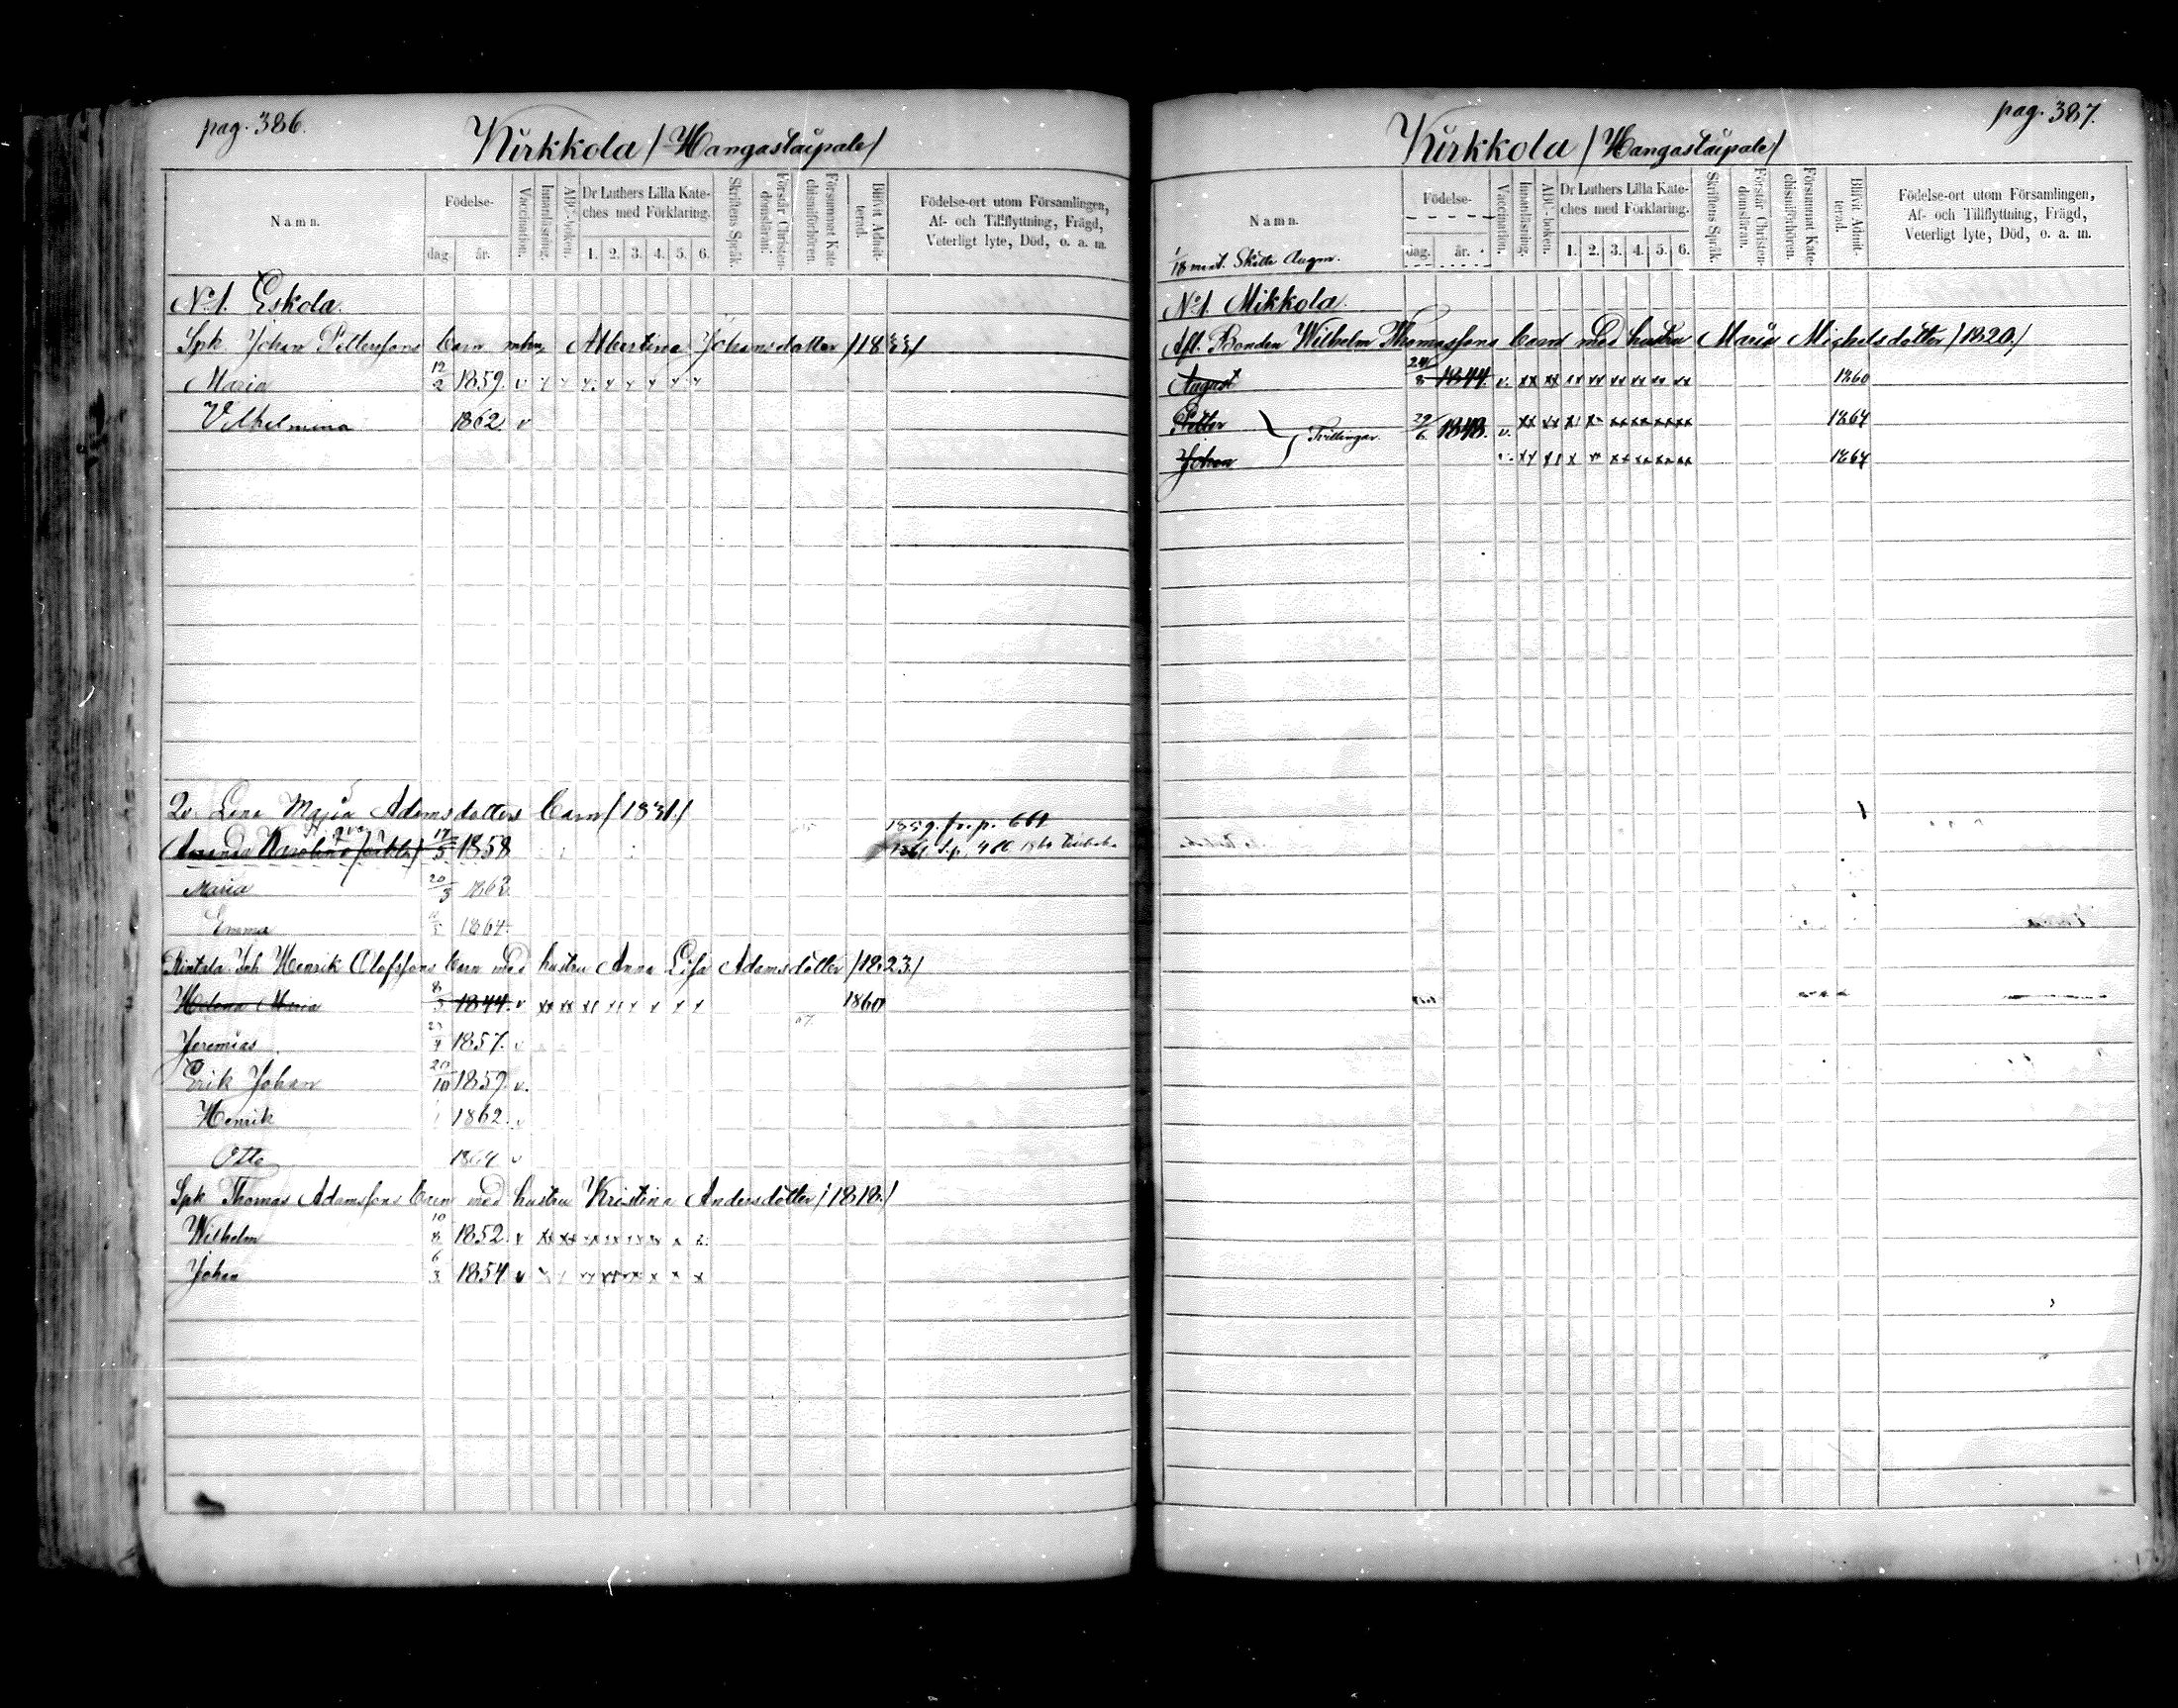 pag. 386.
Kirkkola /Hangastaipale/
Namn.
Födelse-
dag.
år.
Vaccination.
Innanläsning.
ABC-boken.
Dr Luthers Lilla Kate-
ches med Förklaring.
1. 2. 3. 4. 5. 6.
Skriftens Språk.
Förstår Christen-
domslärati.
Försummat Kate
chismiförhören.
Blifvit Admit-
terad.
Födelse-ort utom Församlingen,
Af- och Tillflyttning, Frägd,
Veterligt lyte, Död, o. a. m.
No 1. Eskola.
Spk. Johan Pettersfons barn Albertina Johansdotter /1833/
Maria 12/2 1859. v
Vilhelmina 1862. v
Lena Majia Adamsdotters barn /1831./
1859. fr. p. 661
Amanda Karolina 17/5 1858
Maria 20/3 1863
Emma 1864
Rintala Joh Henrik Olofsfons barn med hustru Anna Lisa Adamsdotter /1823./
Helena Maria 8/5 1844. v xx xx xx xx x x x x 1860
Jeremias 1857. v
Erik Johan 20/10 1859. v.
Henrik 1862. v
Otto 1864 v
Spk Thomas Adamsfons barn med hustru Kristina Andersdotter /1818./
Wilhelm 10/8 1852. v
Johan 6/3 1854 v
pag. 387.
Kirkkola /Hangastaipale/
Namn.
Födelse-
dag.
år.
Vaccination.
Innanläsning.
ABC-boken.
Dr Luthers Lilla Kate-
ches med Förklaring.
1. 2. 3. 4. 5. 6.
Skriftens Språk.
Förstår Christen-
domsläran.
Försummat Kate-
chismiförhören.
Blifvit Admit-
terad.
Födelse-ort utom Församlingen,
Af- och Tillflyttning, Frägd,
Veterligt lyte, Död, o. a. m.
1/18 mnt. Skatte Augm.
No 1. Mikkola.
Afl. Bonden Wilhelm Thomasfons barn med hustru Maria Michelsdotter /1820./
August 24/8 1844. v. xx xx xx xx xx xx xx xx 1860
Petter Tvillingar. 29/6 1848. v. 1864
Johan 1864